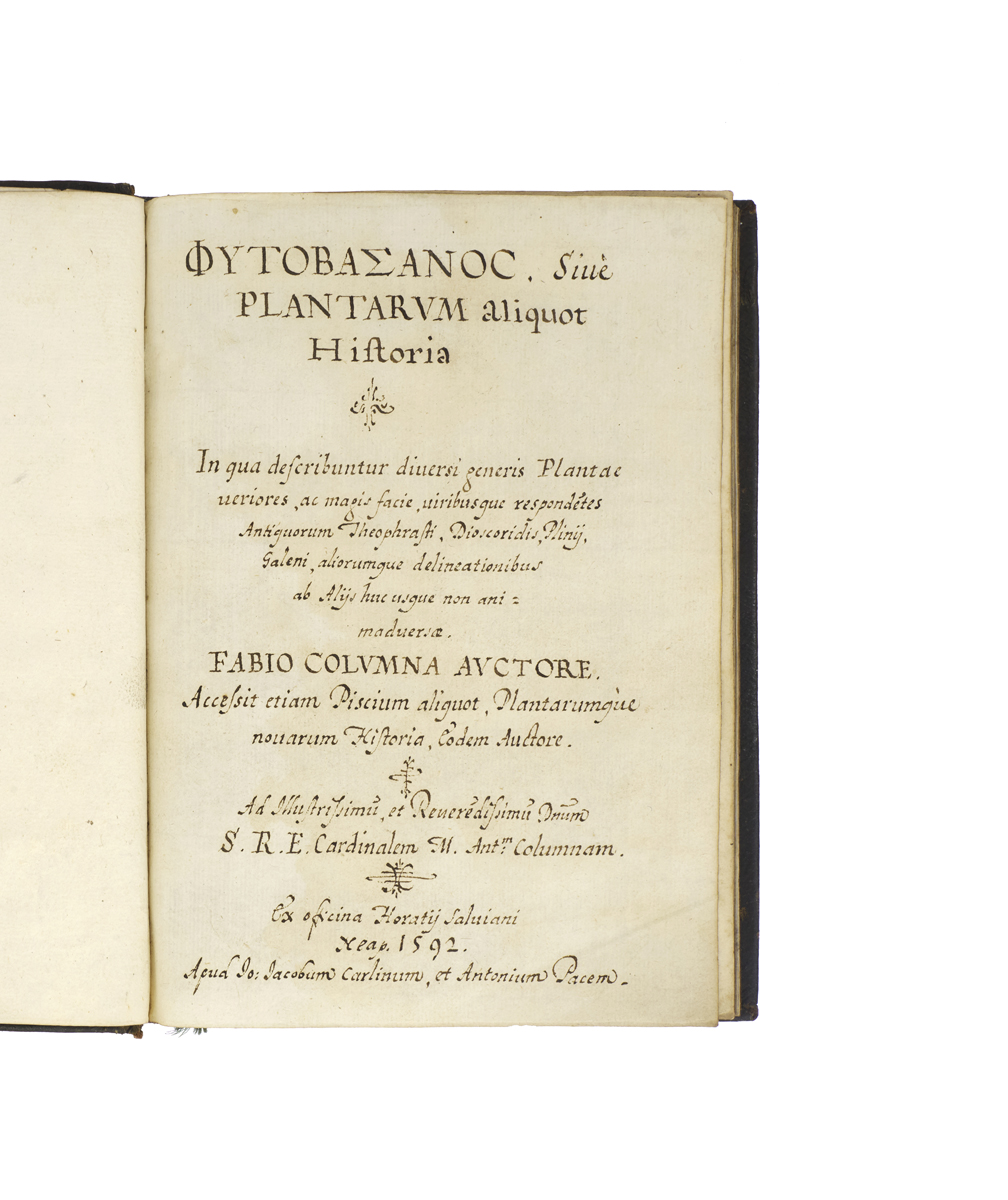 ΦΥΤΟΒΑΣΑΝΟC. Siuè
PLANTARVM aliquot
Hiſtoria
In qua deſcribuntur diuersi generis Plantae
ueriores, ac magis facie, uiribusque respondẽtes
Antiquorum Theophraſti, Dioscoridis, Plinij,
Galeni, aliorumque delineationibus
ab Alijs huc usque non ani=
maduersæ.
FABIO COLVMNA AVCTORE.
Acceſsit etiam Piscium aliquot, Plantarumq̀ue
nouarum Hiſtoria, Eodem Auctore.
Ad Illuſtriſsimũ, et Reuerẽdiſsimũ Dnũm
S. R. E. Cardinalem M. Antᵐ Columnam.
Ex officina Horatij Saluiani
Neap. 1592.
Apud Io: Iacobum Carlinum, et Antonium Pacem.